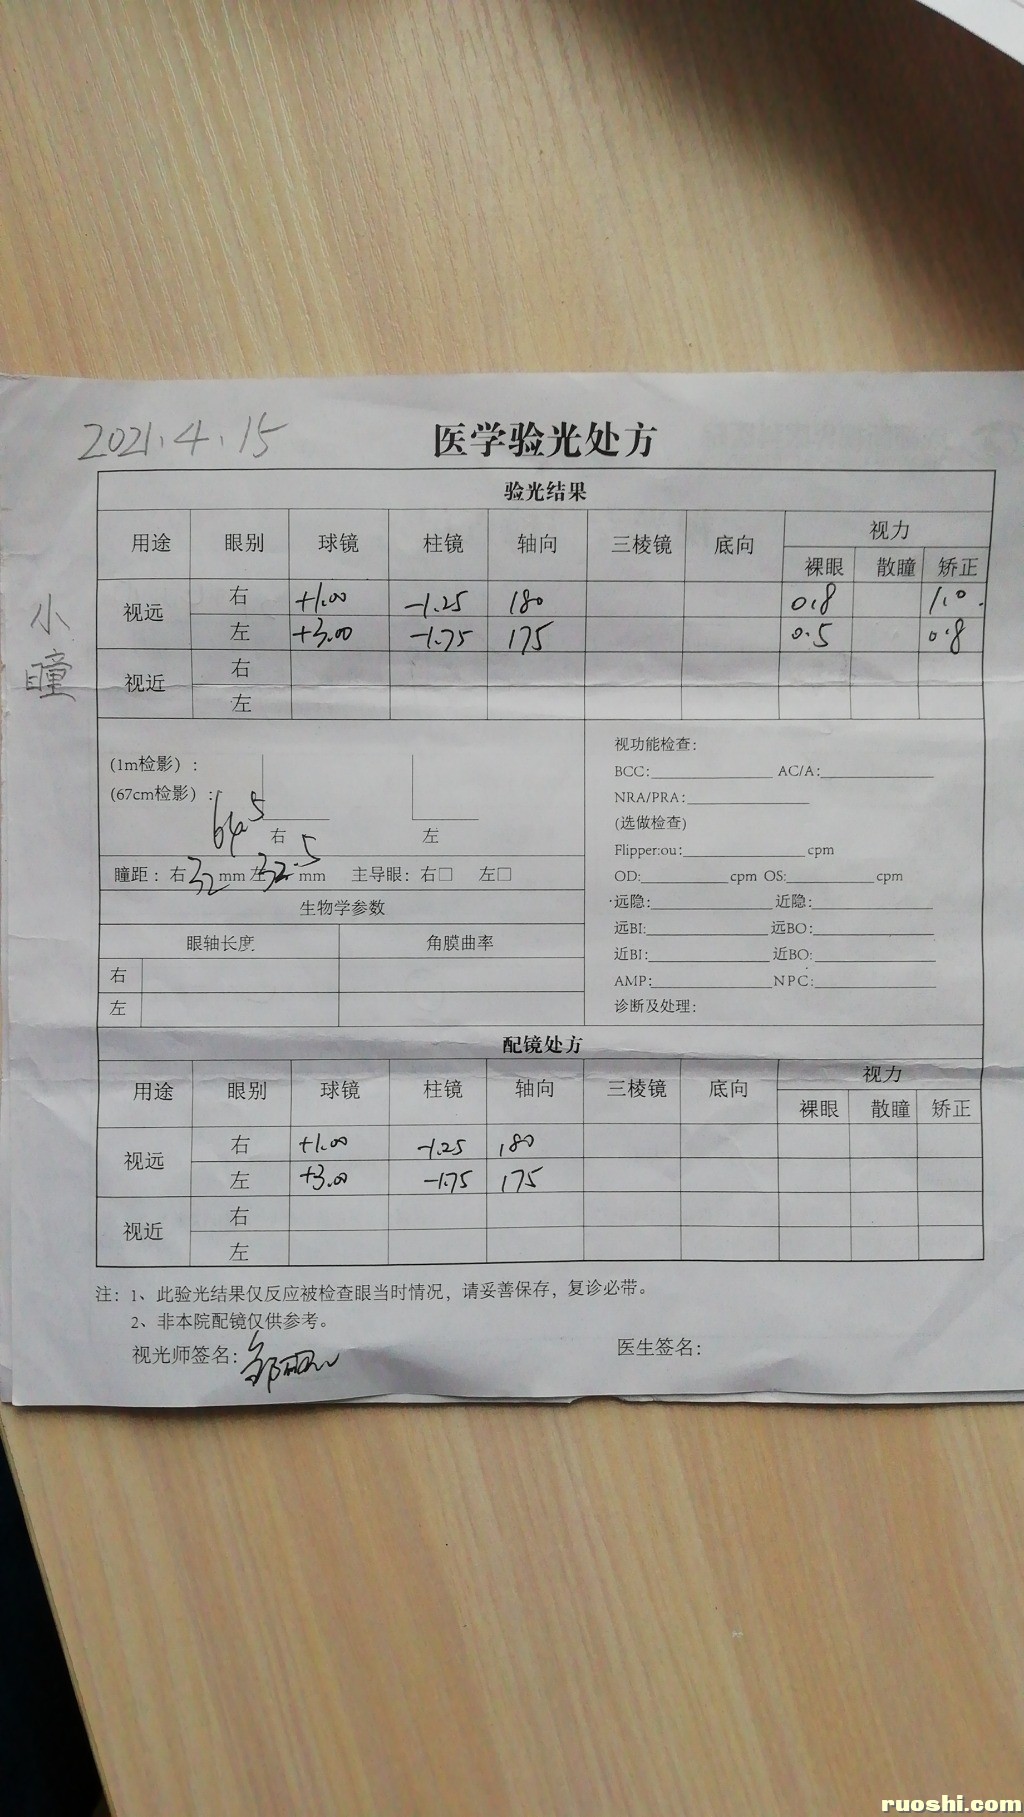 2021.4.15
医学验光处方
验光结果
用途 眼别 球镜 柱镜 轴向 三棱镜 底向 视力
裸眼 散瞳 矫正
小瞳
视远 右 +1.00 -1.25 180 0.8 1.0
左 +3.00 -1.75 175 0.5 0.8
视近 右
左
(1m检影):
(67cm检影):
64.5
右 左
瞳距:右32mm 左32.5mm 主导眼:右□ 左□
生物学参数
眼轴长度 角膜曲率
右
左
视功能检查:
BCC: AC/A:
NRA/PRA:
(选做检查)
Flipper:ou: cpm
OD: cpm OS: cpm
远隐: 近隐:
远BI: 远BO:
近BI: 近BO:
AMP: NPC:
诊断及处理:
配镜处方
用途 眼别 球镜 柱镜 轴向 三棱镜 底向 视力
裸眼 散瞳 矫正
视远 右 +1.00 -1.25 180
左 +3.00 -1.75 175
视近 右
左
注:1、此验光结果仅反应被检查眼当时情况,请妥善保存,复诊必带。
2、非本院配镜仅供参考。
视光师签名: 医生签名:
ruoshi.com